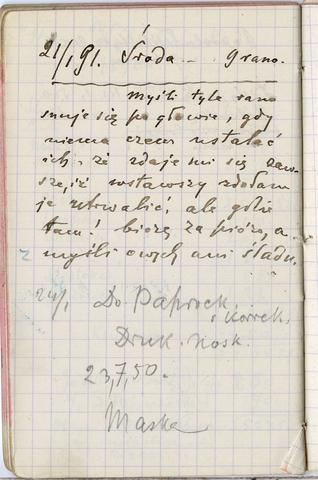 21/I 91. Środa — 9 rano.
Myśli tyle rano
snuje się po głowie, gdy
niema czem ustalać
ich, że zdaje mi się zaw-
sze, iż wstawszy zdołam
je utrwalić, ale gdzie
tam! biorę za pióro, a
myśli owych ani śladu.
24/I Do Paprock.
i Korrek.
Druk. Nosk.
23,7,50.
Maska